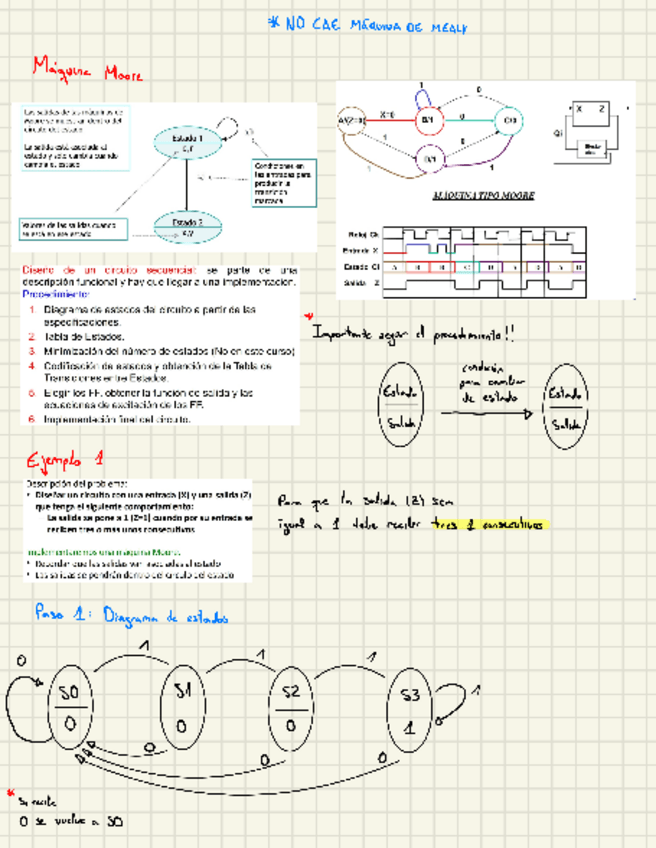 * NO CAE MÁQUINA DE MEALY
Máquina Moore
Las salidas de las máquinas de
Moore se muestran dentro del
círculo del estado
La salida está asociada al
estado y sólo cambia cuando
cambia el estado
Estado 1
Condiciones en
las entradas para
producir la
transición
marcada
Valores de las salidas cuando
se está en ese estado
Estado 2
x,y
X=0
1
0
1
0
0
1
1
B/1
C/0
D/1
X Z
MAQUINA TIPO MOORE
Reloj Ck
Entrada X
Estado Qi
Salida Z
Diseño de un circuito secuencial: se parte de una
descripción funcional y hay que llegar a una implementación.
Procedimiento:
1. Diagrama de estados del circuito a partir de las
especificaciones.
2. Tabla de Estados.
3. Minimización del número de estados (No en este curso)
4. Codificación de estados y obtención de la Tabla de
Transiciones entre Estados.
5. Elegir los FF, obtener la función de salida y las
ecuaciones de excitación de los FF.
6. Implementación final del circuito.
* Importante seguir el procedimiento!!
Estado
Salida
condición
para cambiar
de estado
Estado
Salida
Ejemplo 1
Descripción del problema:
• Diseñar un circuito con una entrada (X) y una salida (Z)
que tenga el siguiente comportamiento:
La salida se pone a 1 (Z=1) cuando por su entrada se
reciben tres o más unos consecutivos
Implementaremos una máquina Moore:
• Recordar que las salidas van asociadas al estado
• Las salidas se pondrán dentro del círculo del estado
Para que la salida (Z) sea
igual a 1 debe recibir tres 1 consecutivos
Paso 1: Diagrama de estados
0
1
1
1
1
S0
0
S1
0
S2
0
S3
1
0
0
0
* Si recibe
0 se vuelve a S0